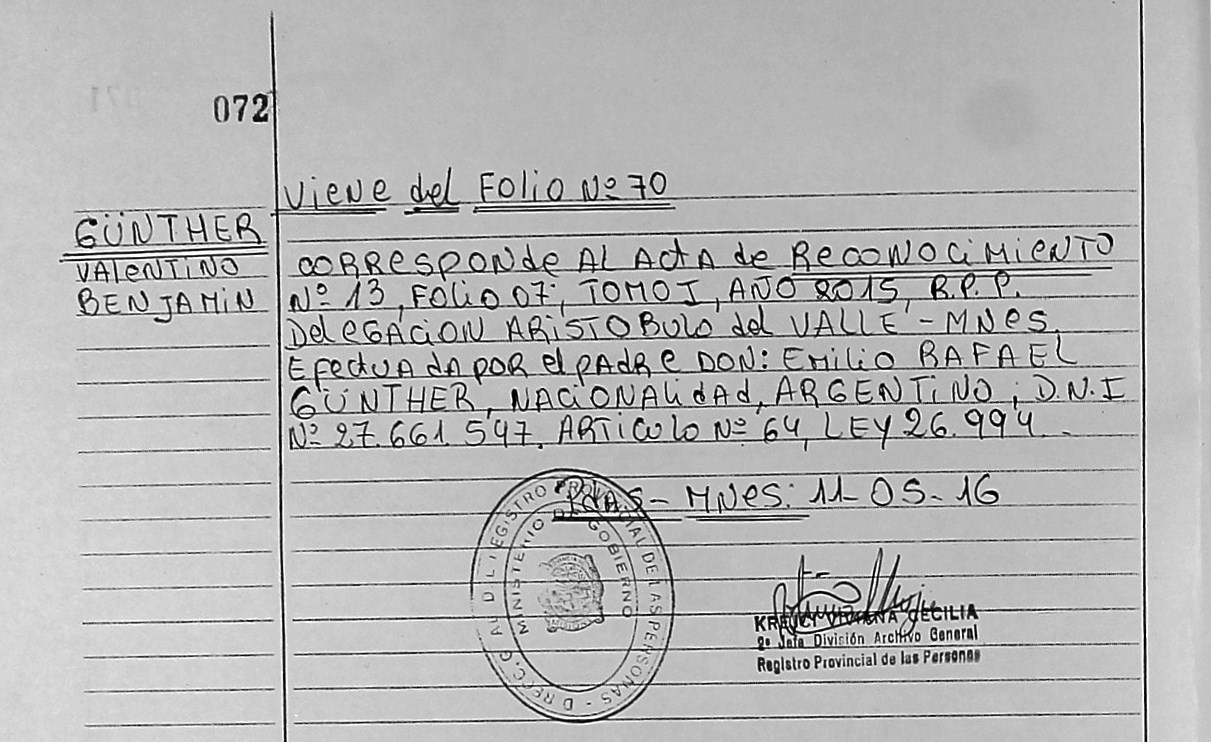 072
Viene del Folio Nº 70
GÜNTHER
VALENTINO
BENJAMIN
CORRESPONDE AL ACTA de RECONOCIMIENTO
Nº 13, FOLIO 07, TOMO I, AÑO 2015, R.P.P.
DelEGACION ARISTOBULO del VALLE - MNES.
EfectuAdA POR el PADRE DON: EMILIO RAFAEL
GÜNTHER, NACIONALIdAd, ARGENTINO, D.N.I
Nº 27.661.547. ARTICULO Nº 64, LEY 26.994.-
PdAS - MNES: 11-05-16
REGISTRO PROVINCIAL DE LAS PERSONAS
MINISTERIO DE GOBIERNO
CECILIA
2º Jefa División Archivo General
Registro Provincial de las Personas